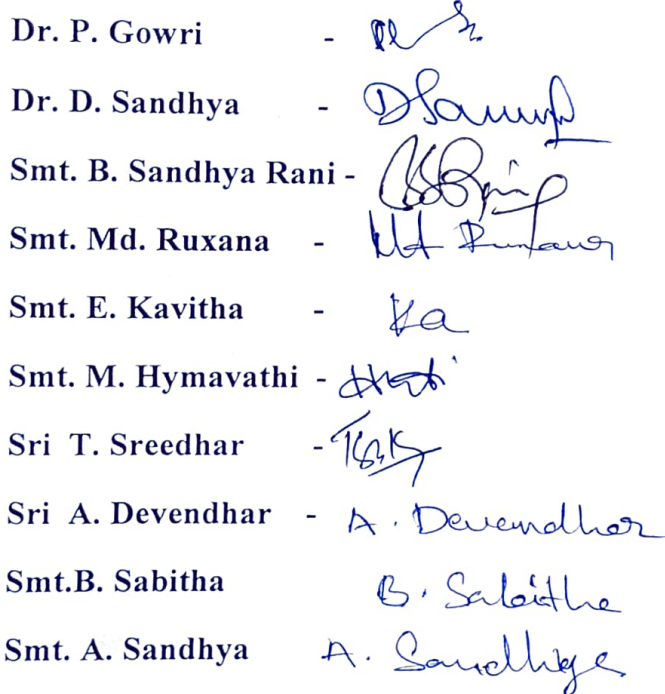 Dr. P. Gowri -
Dr. D. Sandhya - DSandhya
Smt. B. Sandhya Rani -
Smt. Md. Ruxana - Md Ruxana
Smt. E. Kavitha - Ka
Smt. M. Hymavathi -
Sri T. Sreedhar -
Sri A. Devendhar - A. Devendhar
Smt.B. Sabitha B. Sabitha
Smt. A. Sandhya A. Sandhya